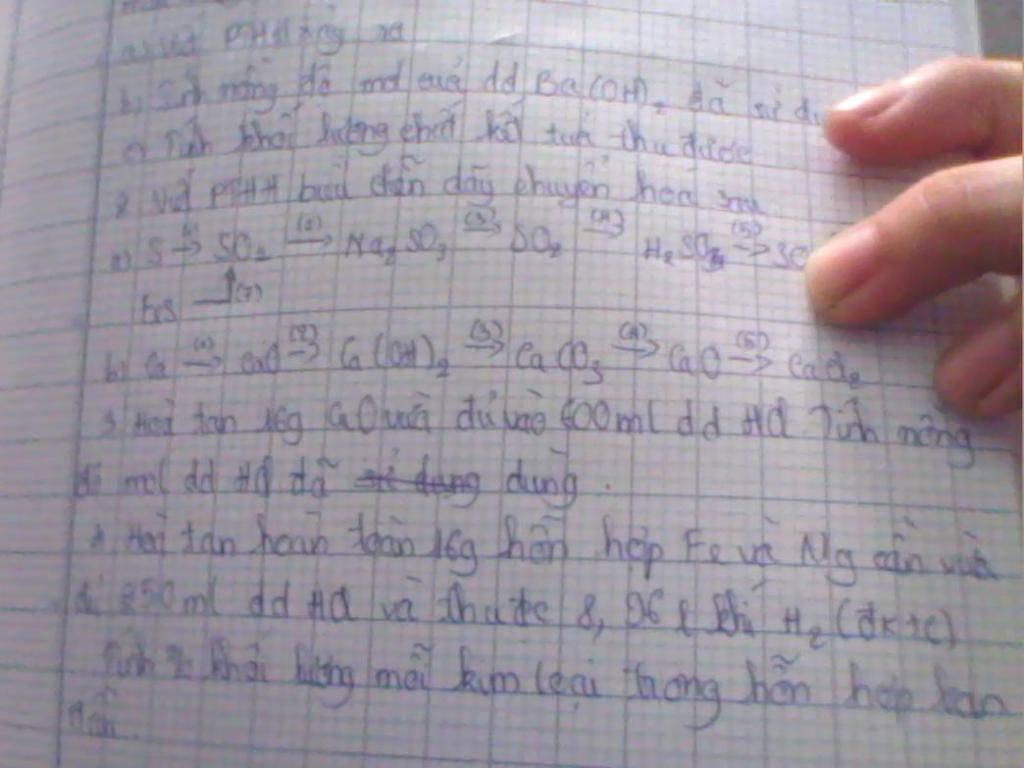 a) Viết PTHH xảy ra
b) Tính nồng độ mol của dd Ba(OH)₂ đã sử
c) Tính khối lượng chất kết tủa thu được
2 Viết PTHH biểu diễn dãy chuyển hoá sau
a) S →(1) SO₂ →(2) Na₂SO₃ →(3) SO₂ →(4) H₂SO₃ →(5)
(7)
b) Ca →(1) CaO →(2) Ca(OH)₂ →(3) CaCO₃ →(4) CaO →(5) CaCl₂
3 Hoà tan 16g vừa đủ vào ml dd HCl Tính nồng
độ mol dd HCl đã dùng .
4 Hoà tan hoàn toàn 16g hỗn hợp Fe và Mg cần vừa
đủ 250ml dd HCl và thu đc 8,96 l khí H₂ (đktc)
Tính % khối lượng mỗi kim loại trong hỗn hợp ban
đầu.